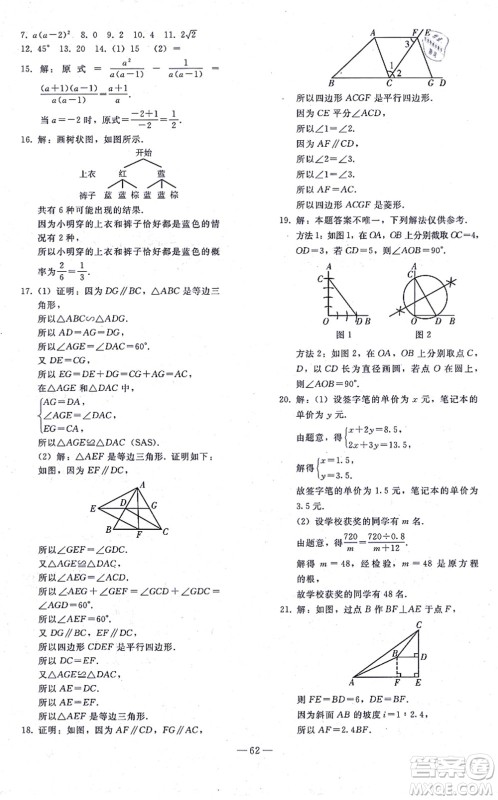 7. a(a－2)²  8. 0  9. 2  10. 2  11. 2√2
12. 45°  13. 20  14. (1) 15  (2) =
15. 解：原式＝a²/a(a－1)－1/a(a－1)＝
(a＋1)(a－1)/a(a－1)＝a＋1/a.
当a＝－2时，原式＝－2＋1/－2＝1/2.
16. 解：画树状图，如图所示.
开始
上衣 红 蓝
裤子 蓝 蓝 棕 蓝 蓝 棕
共有6种可能出现的结果.
因为小明穿的上衣和裤子恰好都是蓝色的情况有2种，
所以小明穿的上衣和裤子恰好都是蓝色的概
率为2/6＝1/3.
17. (1) 证明：因为DG∥BC，△ABC是等边三
角形，
所以△ABC∽△ADG.
所以AD＝AG＝DG，
所以∠AGE＝∠DAC＝60°.
又DE＝CG，
所以EG＝DE＋DG＝CG＋AG＝AC.
在△AGE和△DAC中，
AG＝DA，
∠AGE＝∠DAC，
EG＝CA，
所以△AGE≌△DAC (SAS).
(2) 解：△AEF是等边三角形. 证明如下：
因为EF∥DC，
A
E D G
B F C
所以∠GEF＝∠GDC.
又△AGE≌△DAC，
所以∠AEG＝∠DCA.
所以∠AEF＝∠AEG＋∠GEF＝∠DCA＋
∠GDC＝∠AGD＝60°.
又DG∥BC，EF∥DC，
所以四边形CDEF是平行四边形.
所以DC＝EF.
又△AGE≌△DAC，
所以AE＝DC，
所以AE＝EF.
所以△AEF是等边三角形.
18. 证明：如图，因为AF∥CD，FG∥AC，
A F E
3
1 2
B C G D
所以四边形ACGF是平行四边形.
因为CE平分∠ACD，
所以∠1＝∠2.
因为AF∥CD，
所以∠2＝∠3.
所以∠1＝∠3.
所以AC＝AF.
所以四边形ACGF是菱形.
19. 解：本题答案不唯一，下列解法仅供参考.
方法1：如图1，在OA，OB上分别截取OC＝4，
OD＝3，若CD＝5，则∠AOB＝90°.
A C O D B
A C O D B
图1 图2
方法2：如图2，在OA，OB上分别取点C，D，
以CD为直径画圆，若点O在圆上，则
∠AOB＝90°.
20. 解：(1) 设签字笔的单价为x元，笔记本的
单价为y元.
由题意，得{x＋2y＝8.5，
2x＋3y＝13.5，
解得{x＝1.5，
y＝3.5.
故签字笔的单价为1.5元，笔记本的单价为
3.5元.
(2) 设学校获奖的同学有m名.
由题意，得720/m＝720÷0.8/m＋12，
解得m＝48，经检验，m＝48是原方程
的根，
故学校获奖的同学有48名.
21. 解：如图，过点B作BF⊥AE于点F，
C
B D
A F E
则FE＝BD＝6，DE＝BF.
因为斜面AB的坡度i＝1∶2.4，
所以AF＝2.4BF.
— 62 —